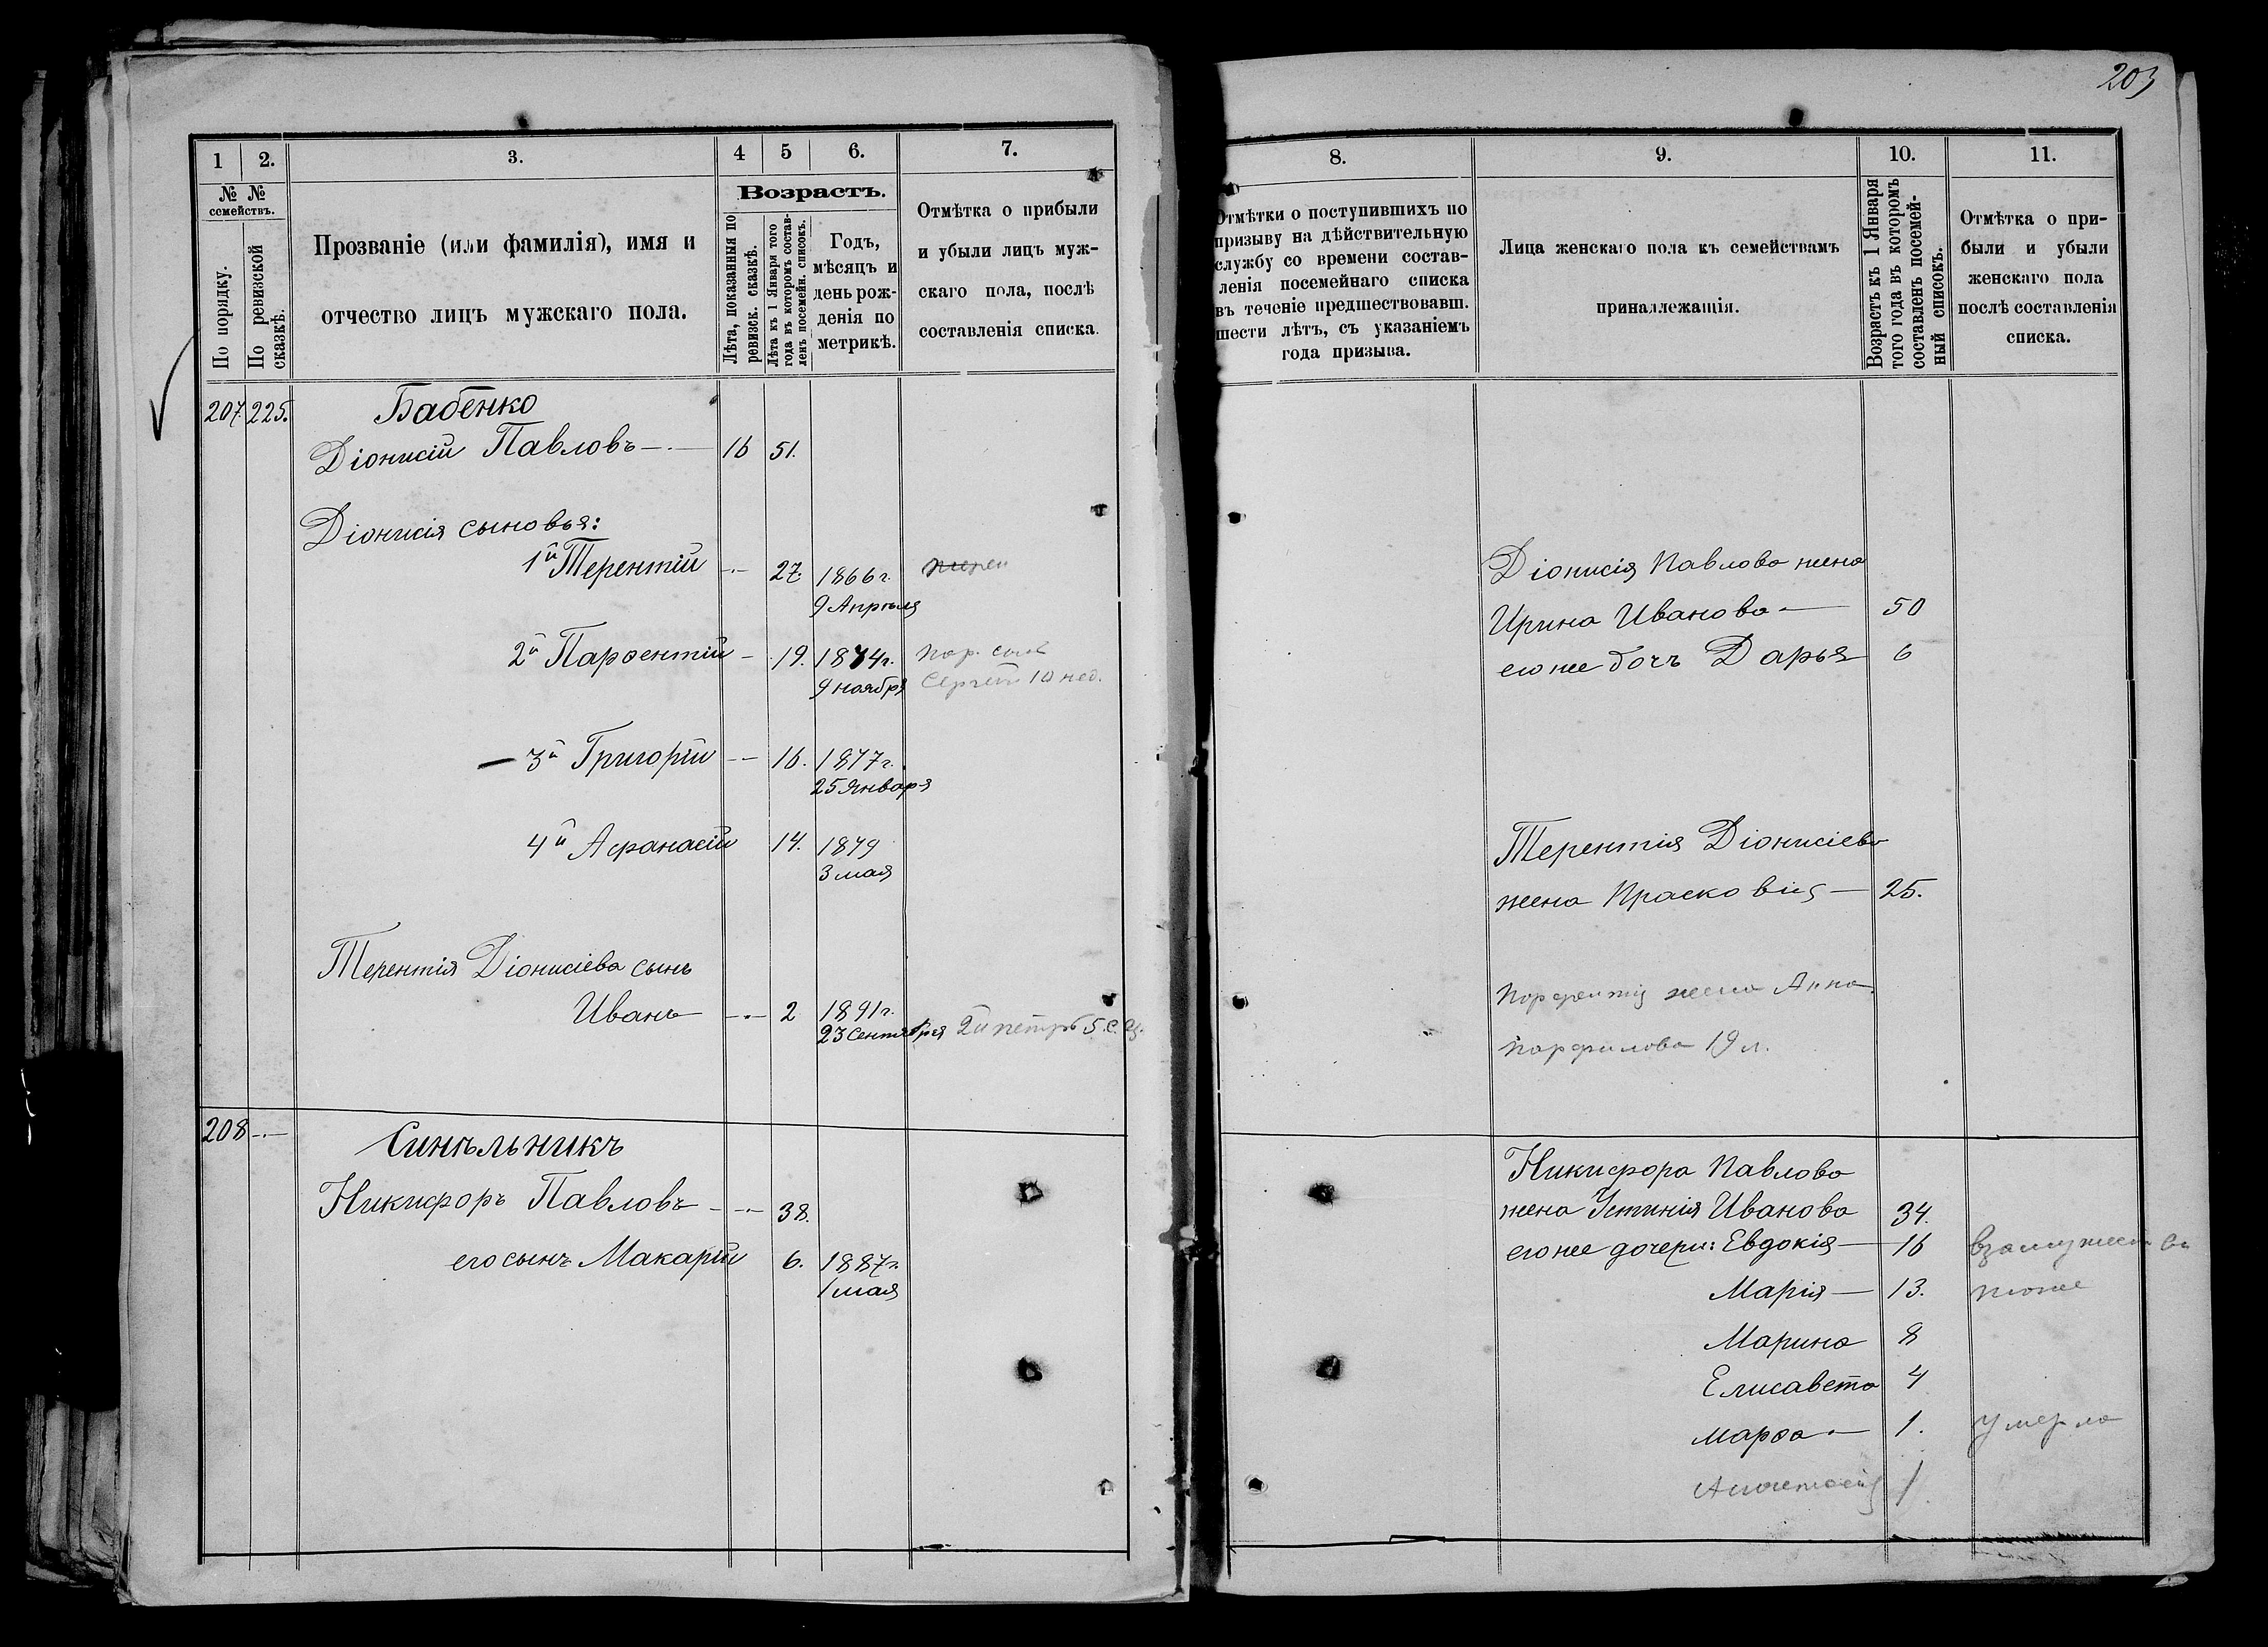 203
1 2. 3. 4 5 6. 7.
№ №
семействъ.
По порядку.
По ревизской сказкѣ.
Прозваніе (или фамилія), имя и
отчество лицъ мужскаго пола.
Возрастъ.
Лѣта, показанныя по
ревизск. сказкѣ.
Лѣта къ 1 Января того
года въ которомъ состав-
ленъ посемейн. списокъ.
Годъ,
мѣсяцъ и
день рож-
денія по
метрикѣ.
Отмѣтка о прибыли
и убыли лицъ муж-
скаго пола, послѣ
составленія списка.
207. 225. Бабенко
Діонисій Павловъ 16 51.
Діонисія сыновья:
1й Терентій 27. 1866 г.
9 Апрѣля
2й Парѳентій 19. 1874 г. Пар. сынъ
9 ноября Сергѣй 10 нед.
3й Григорій 16. 1877 г.
25 Января
4й Афанасій 14. 1879
3 мая
Терентія Діонисіева сынъ
Иванъ 2 1891 г.
23 Сентября 2й Петръ 5
208 Синѣльникъ
Никифоръ Павловъ 38.
его сынъ Макарій 6. 1887 г.
1 мая
8. 9. 10. 11.
Отмѣтки о поступившихъ по
призыву на дѣйствительную
службу со времени состав-
ленія посемейнаго списка
въ теченіе предшествовавш.
шести лѣтъ, съ указаніемъ
года призыва.
Лица женскаго пола къ семействамъ
принадлежащія.
Возрастъ къ 1 Января
того года въ которомъ
составленъ посемей-
ный списокъ.
Отмѣтка о при-
были и убыли
женскаго пола
послѣ составленія
списка.
Діонисія Павлова жена
Ирина Иванова 50
его же дочь Дарья 6
Терентія Діонисіева
жена Прасковія 25.
Парфентія жена Анна
Парфилова 19 л.
Никифора Павлова
жена Устинія Иванова 34.
его же дочери: Евдокія 16 взамужест
Марія 13. тоже
Марина 8
Елисавета 4
Марѳа 1. умерла
1